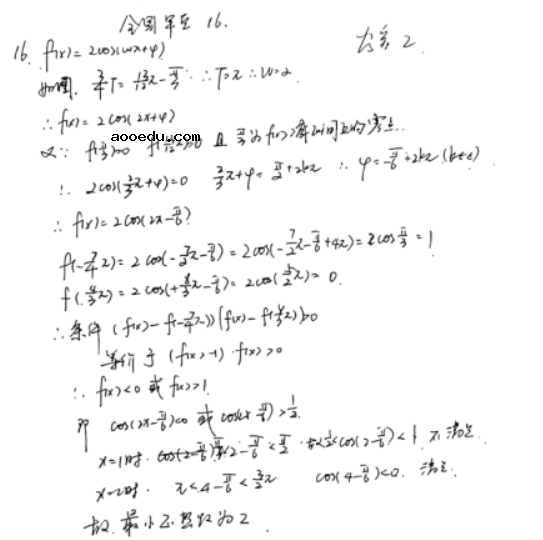 全国甲卷 16.
答案 2
16. f(x)=2cos(ωx+φ)
如图. 3/4T=13/12π-π/3 ∴T=π ∴ω=2
∴f(x)=2cos(2x+φ)
aooedu.com
又∵ f(π/3)=0 且π/3为f(x)的零点
∴ 2cos(2/3π+φ)=0 2/3π+φ=π/2+2kπ ∴ φ=-π/6+2kπ(k∈Z)
∴ f(x)=2cos(2x-π/6)
f(-7/4π)=2cos(-7/2π-π/6)=2cos(-7/2π-π/6+4π)=2cosπ/3=1
f(4/3π)=2cos(+8/3π-π/6)=2cos(5/2π)=0.
∴条件 (f(x)-f(-7/4π))(f(x)-f(4/3π))>0
等价于 (f(x)-1)·f(x)>0
∴ f(x)<0 或 f(x)>1.
即 cos(2x-π/6)<0 或 cos(2x-π/6)>1/2.
x=1时. 2-π/6<π/2 cos(2-π/6)<1 不满足.
x=2时. π<4-π/6<3/2π cos(4-π/6)<0. 满足.
故最小正整数为2